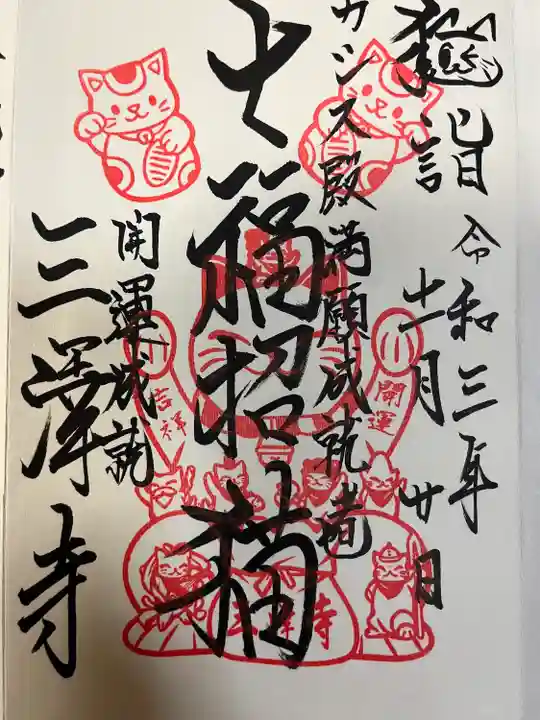 詣
令和三年
十一月廿日
カシス殿満願成就
七福招猫
開運成就
三澤寺
開運
吉祥
三澤寺